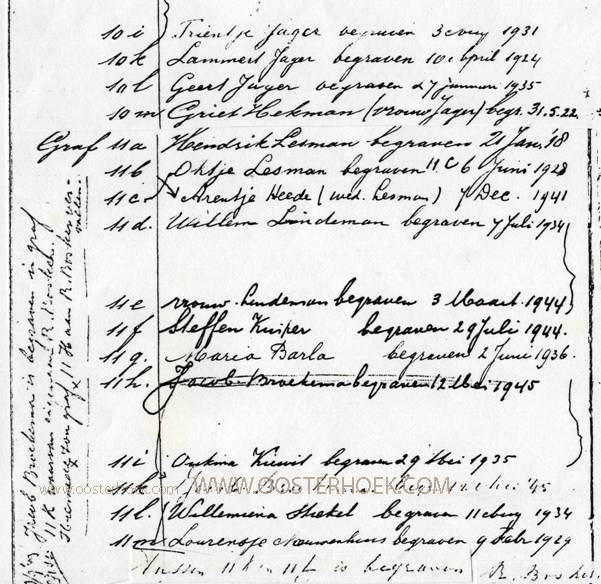 10 i Trientje Jager begraven 3 Aug 1931
10 k Lammert Jager begraven 10 April 1924
10 l Geert Jager begraven 27 Januari 1935
10 m Griet Hekman (vrouw Jager) begr. 31.5.22
Graf 11 a Hendrik Lesman begraven 21 Jan. '18
11 b Lesman begraven 11 C 6 Juni 1928
11 c Arentje Heede (wed. Lesman) 7 Dec. 1941
11 d. Willem Lindeman begraven 7 Juli 1934
11 e vrouw Lindeman begraven 3 Maart 1944
11 f Steffen Kuiper begraven 29 Juli 1944.
11 g. Maria Barla begraven 2 Juni 1936.
11 h. Jacob Broekema begraven 12 Mei 1945
11 i Kiewit begraven 29 Mei 1935
'45
11 l. Willemiena begraven 11 Aug 1934
11 m Lourensje begraven 9 Febr 1929
Tussen 11 k en 11 l is begraven R. Bosker
Jacob Broekema is begraven in graf
11 K waarvan eigenaar R. Bosker.
Hiervoor kan graf 11 H aan R. Bosker ver-
vallen.
www.oosterhoek.com
WWW.OOSTERHOEK.COM